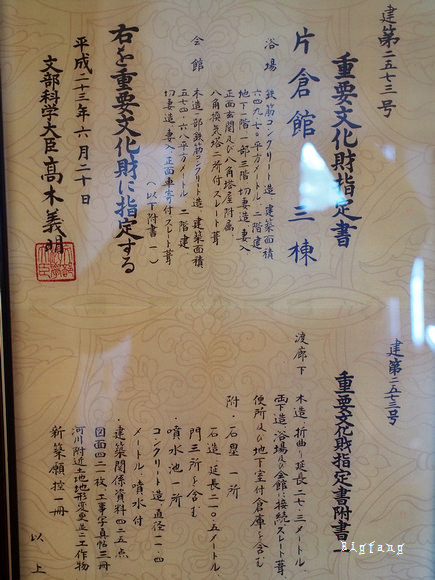 建第二五七三号
重要文化財指定書
片倉館 三棟
浴場 鉄筋コンクリート造 建築面積
六四九・七〇平方メートル 二階建
地下一階 一部三階 切妻造 妻入
正面玄関及び八角塔屋附属
八角換気塔二所付 スレート葺
会館 木造一部鉄筋コンクリート造 建築面積
五七四・六八平方メートル 二階建
切妻造 妻入 正面車寄付 スレート葺
(以下附書一)
右を重要文化財に指定する
平成二十三年六月二十日
文部科学大臣 髙木義明
建第二五七三号
重要文化財指定書附書一
渡廊下 木造 折曲り延長二七・三メートル
両下造 浴場及び会館に接続 スレート葺
便所及び地下室付倉庫を含む
附・石塁 一所
石造 延長二一〇・五メートル
門三所を含む
・噴水池 一所
コンクリート造 直径一一・四
メートル 噴水付
・建築関係資料 四二五点
図面四二一枚 工事写真帖三冊
河川附近土地地形変更並ニ工作物
新築願控一冊
以上
Bigfang